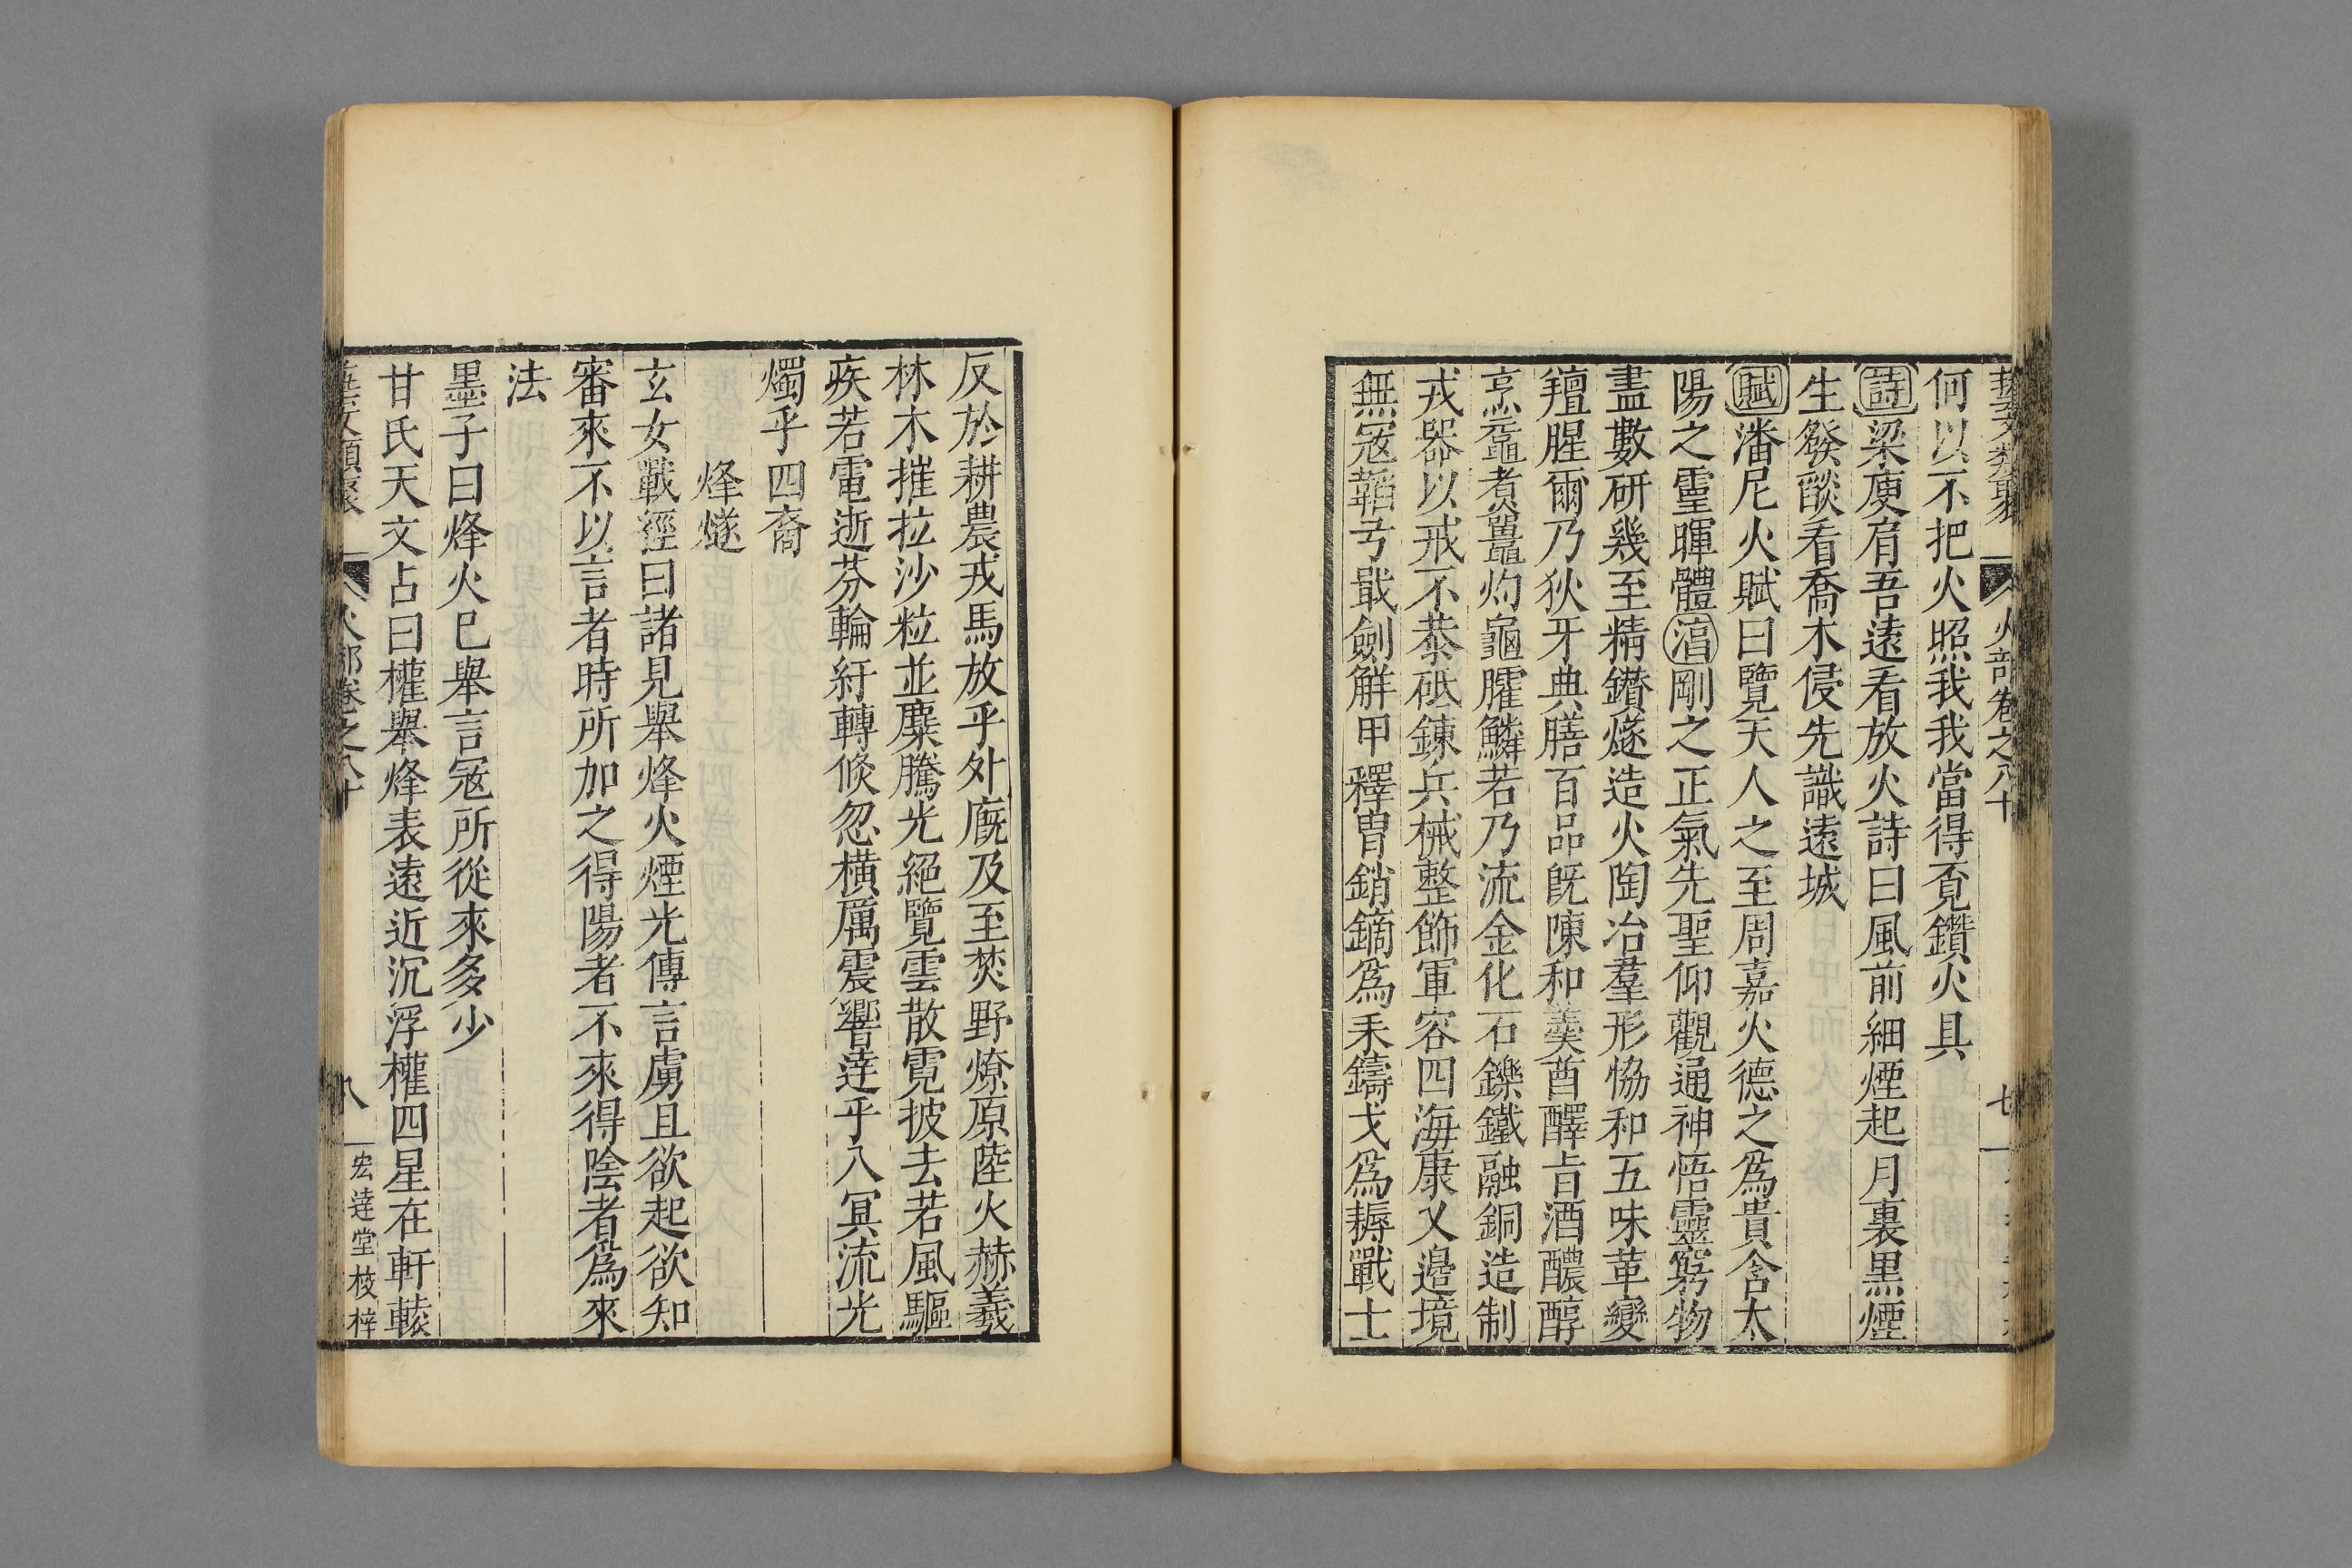 藝文類聚 火部卷之八十 七
何以不把火照我我當得覓鑽火具
詩梁庾肩吾遠看放火詩曰風前細煙起月裏黒煙
生發燄看喬木侵先識遠城
賦潘尼火賦曰覽天人之至周嘉火德之爲貴含太
陽之靈暉體淳剛之正氣先聖仰觀通神悟靈窮物
盡數研幾至精鑚燧造火陶冶羣形恊和五味革變
羶腥爾乃狄牙典膳百品旣陳和羹酋醳旨酒醲醇
烹黿煮鼉灼龜臛鱗若乃流金化石鑠鐵融銅造制
戎器以戒不恭砥鍊兵械整飾軍容四海康乂邉境
無冦韜弓戢劍解甲釋胄銷鏑爲耒鑄戈爲耨戰士
反於耕農戎馬放乎外廐及至焚野燎原陸火赫羲
林木摧拉沙粒並糜騰光絕覽雲散霓披去若風驅
疾若電逝芬輪紆轉倐忽橫厲震響達乎八冥流光
燭乎四裔
烽燧
玄女戰經曰諸見舉烽火煙光傳言虜且欲起欲知
審來不以言者時所加之得陽者不來得陰者爲來
法
墨子曰烽火已舉言冦所從來多少
甘氏天文占曰權舉烽表遠近沉浮權四星在軒轅
藝文類聚 火部卷之八十 八 宏達堂校梓